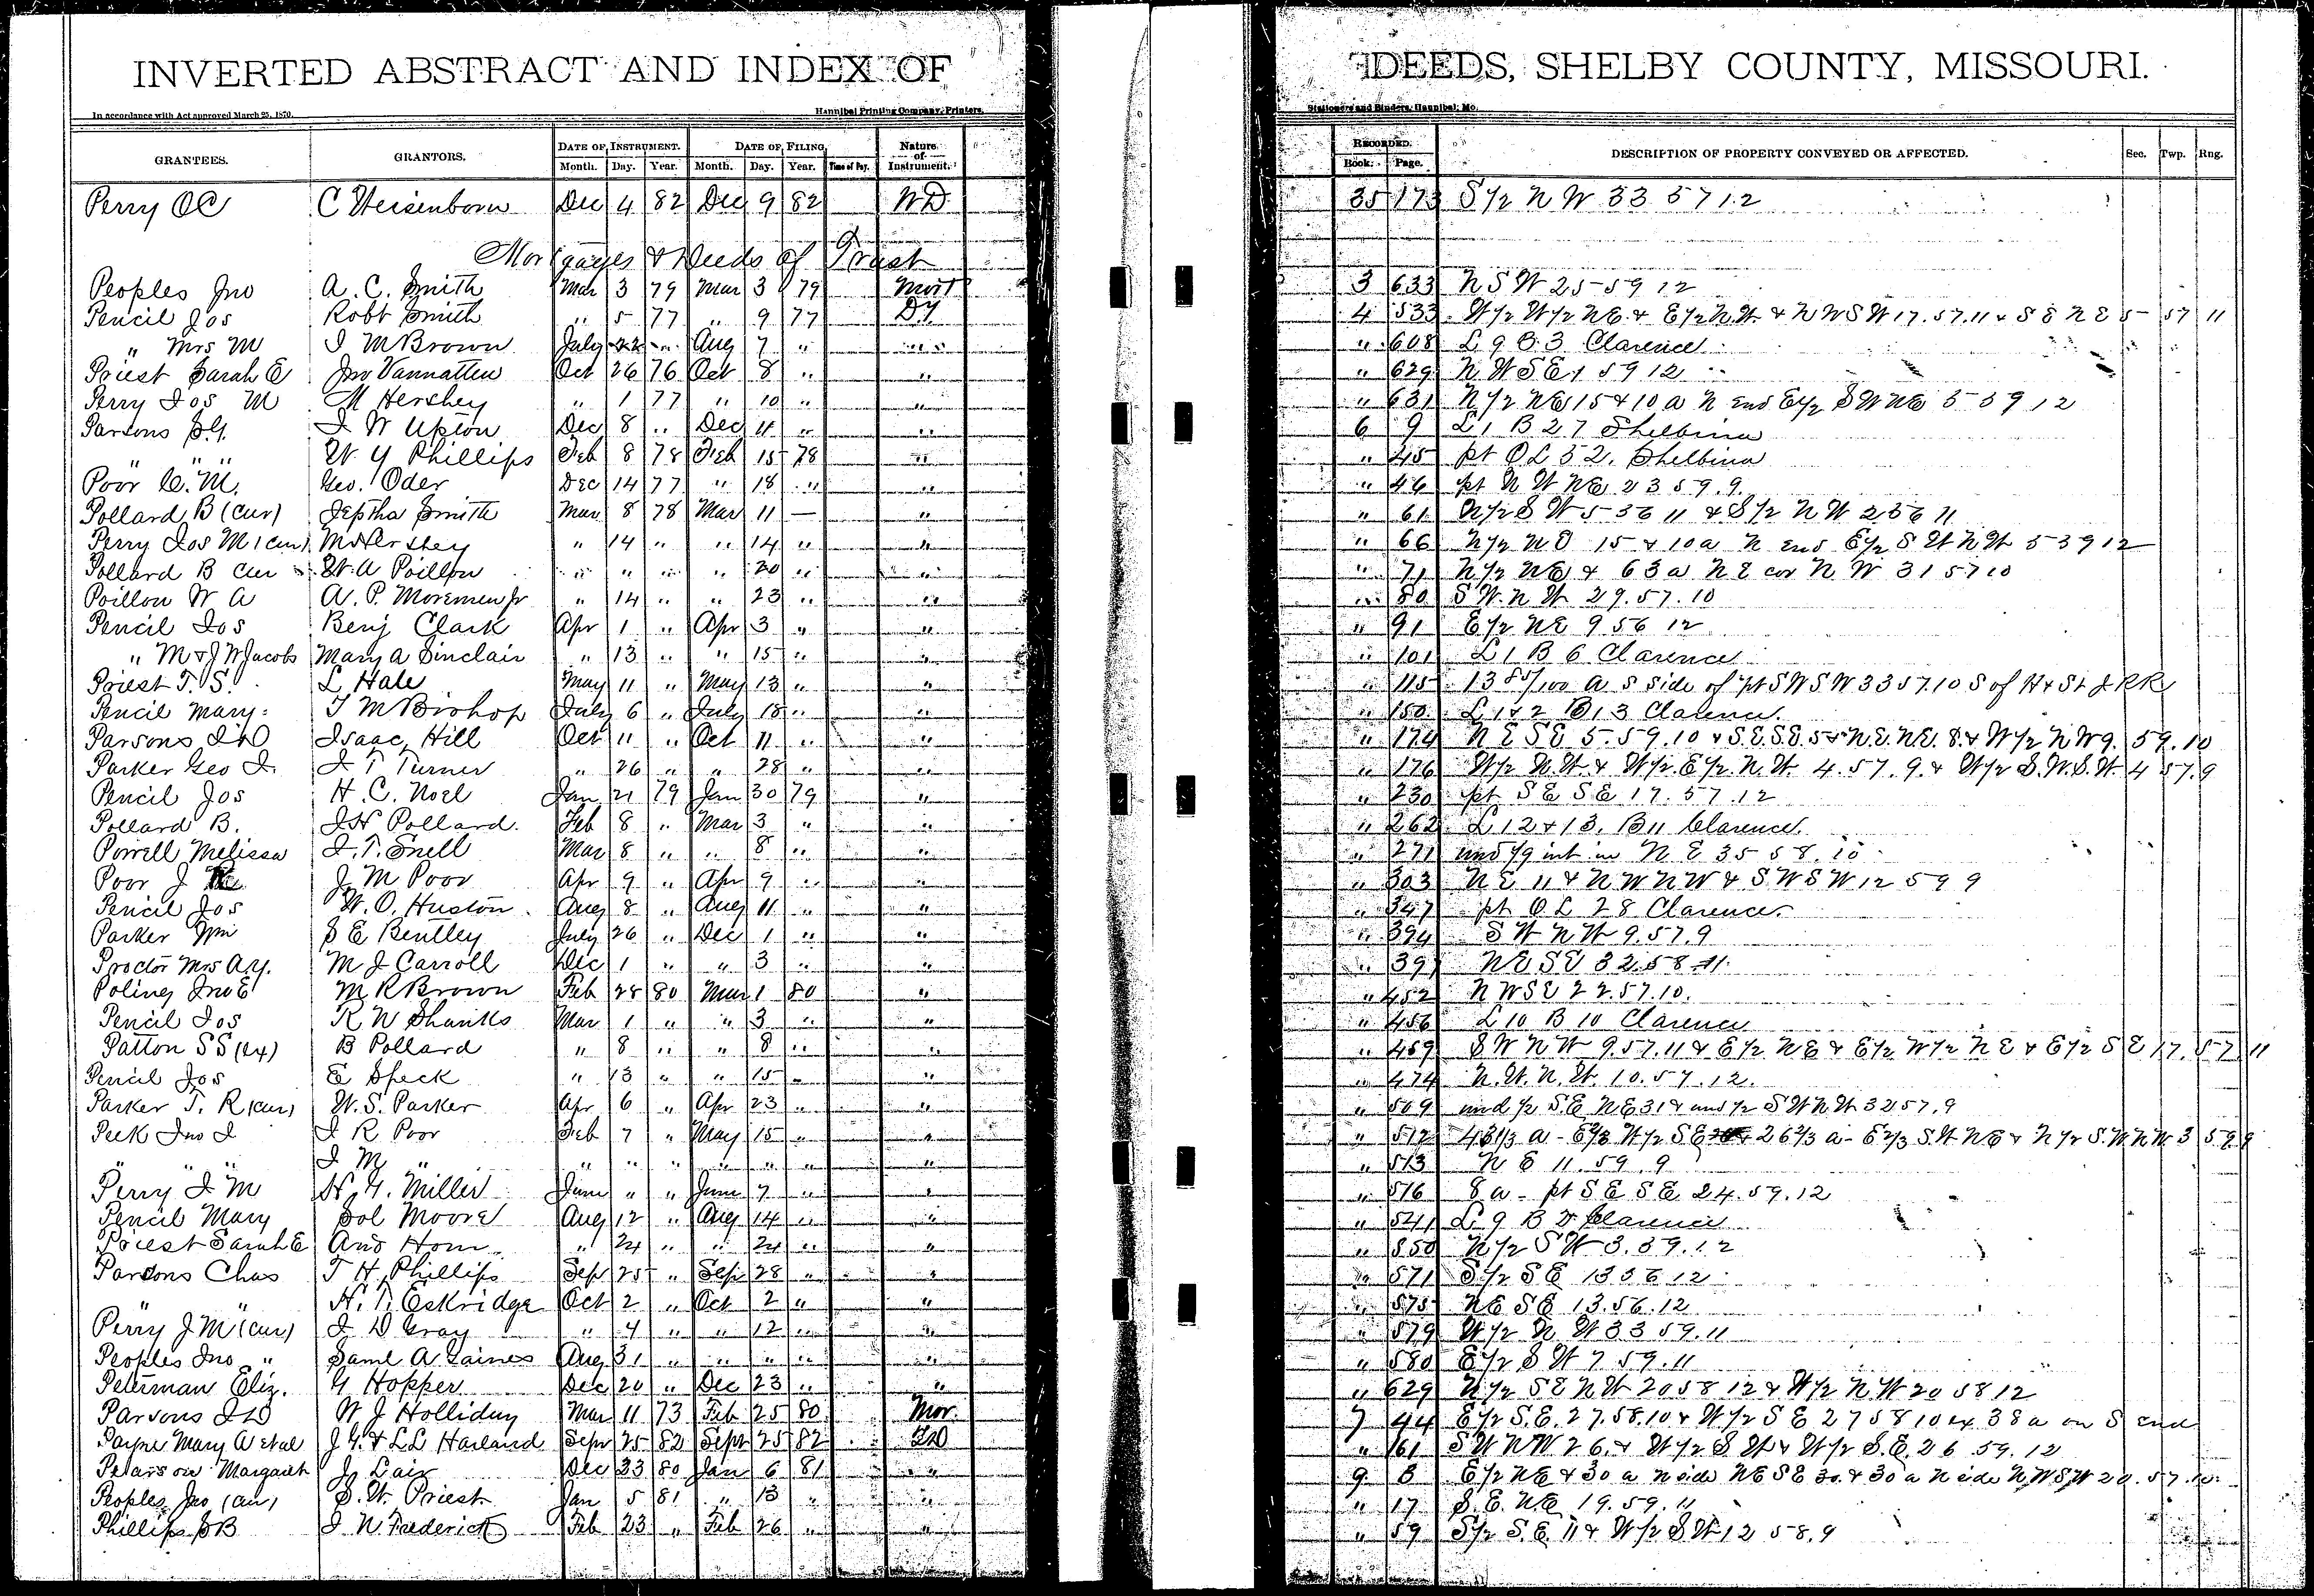 INVERTED ABSTRACT AND INDEX OF DEEDS, SHELBY COUNTY, MISSOURI.
In accordance with Act approved March 25, 1870. Hannibal Printing Company, Printers, Stationers and Binders, Hannibal, Mo.
GRANTEES. GRANTORS. DATE OF INSTRUMENT. DATE OF FILING Nature of Instrument. RECORDED. DESCRIPTION OF PROPERTY CONVEYED OR AFFECTED. Sec. Twp. Rng.
Month. Day. Year. Month. Day. Year. Time of Day. Book. Page.
Perry OC C Weisenborn Dec 4 82 Dec 9 82 WD 35 173 S 1/2 N W 33 57 12
Mortgages & Deeds of Trust
Peoples Jno A. C. Smith Mar 3 79 Mar 3 79 Mort 3 633 N S W 25 59 12
Pencil Jos Robt Smith " 5 77 " 9 77 D.T. 4 533 W 1/2 W 1/2 NE & E 1/2 N.W. & N W S W 17.57.11 & S E N E 5 57 11
" Mrs M J M Brown July 22 " Aug 7 " " " 608 L 9 B 3 Clarence
Priest Sarah E Jno Vannatten Oct 26 76 Oct 8 " " " 629 N W S E 1 59 12
Perry Jos M M Hershey " 1 77 " 10 " " " 631 N 1/2 NE 15 & 10 a N end E 1/2 S W NE 5 59 12
Parsons J W Upton Dec 8 " Dec 11 " " 6 9 L 1 B 27 Shelbina
" " W. Y Phillips Feb 8 78 Feb 15 78 " " 45 pt O L 52. Shelbina
Poor C. M. Geo. Oder Dec 14 77 " 18 " " " 46 pt N W NE 23 59.9.
Pollard B (cur) Jeptha Smith Mar 8 78 Mar 11 — " " 61 N 1/2 S W 5 56 11 & S 1/2 N W 2 56 11
Perry Jos M (cur) M Hershey " 14 " " 14 " " " 66 N 1/2 N E 15 & 10a N end E 1/2 S W N W 5 59 12
Pollard B cur W. A Poillon " " " " 20 " " " 71 N 1/2 NE & 63 a N E cor N W 31 57 10
Poillon W A A. P. Moremen Jr " 14 " " 23 " " " 80 S W. N W 29.57.10
Pencil Jos Benj Clark Apr 1 " Apr 3 " " " 91 E 1/2 NE 9 56 12
" M & J W Jacobs Mary A Sinclair " 13 " " 15 " " " 101 L 1 B 6 Clarence
Priest T. S. L Hale May 11 " May 13 " " " 115 13 85/100 a S side of pt S W S W 33 57.10 S of H & St J RR
Pencil Mary T M Bishop July 6 " July 18 " " " 150 L 1 & 2 B 13 Clarence.
Parsons J D Isaac Hill Oct 11 " Oct 11 " " " 174 N E S E 5.59.10 & S.E.S.E. 5 & N.E.N.E. 8 & W 1/2 N W 9. 59.10
Parker Geo J. J T Turner " 26 " " 28 " " " 176 W 1/2 N.W. & W 1/2 E 1/2 N.W. 4.57.9. & W 1/2 S.W.S.W. 4 57.9
Pencil Jos H. C. Noel Jan 21 79 Jan 30 79 " " 230 pt S E S E 17.57.12
Pollard B. J H Pollard. Feb 8 " Mar 3 " " " 262 L 12 & 13. B 11 Clarence.
Powell Melissa J. T. Snell Mar 8 " " 8 " " " 271 und 1/9 int in N E 35 58.10
Poor J J M Poor Apr 9 " Apr 9 " " " 303 N E 11 & N W N W & S W S W 12 59 9
Pencil Jos W. O. Huston Aug 8 " Aug 11 " " " 347 pt O L 28 Clarence.
Parker Wm S E Bentley July 26 " Dec 1 " " " 394 S W N W 9.57.9
Proctor Mrs A.Y. M J Carroll Dec 1 " " 3 " " " 397 NE SE 32.58.11.
Poling Jno E M R Brown Feb 28 80 Mar 1 80 " " 452 N W S E 22.57.10.
Pencil Jos R W Shanks Mar 1 " " 3 " " " 456 L 10 B 10 Clarence
Patton S S (ex) B Pollard " 8 " " 8 " " " 459 S W N W 9.57.11 & E 1/2 NE & E 1/2 W 1/2 N E & E 1/2 S E 17. 57 11
Pencil Jos E Speck " 13 " " 15 " " " 474 N.W. N.W. 10.57.12.
Parker T. R (cur) W. S. Parker Apr 6 " Apr 23 " " " 509 und 1/2 S.E NE 31 & und 1/2 S W N W 32 57.9
Peek Jno J J R Poor Feb 7 " May 15 " " " 512 a - E 2/3 W 1/2 S E & 26 2/3 a - E 2/3 S.W. NE & N 1/2 S.W. N W 3 59 9
" " " J M " " " " " " " " " 513 N E 11.59.9
Perry J M H. Y. Miller June " " June 7 " " " 516 8 a - pt S E S E 24.59.12
Pencil Mary Sol Moore Aug 12 " Aug 14 " " " 541 L 9 B Clarence
Priest Sarah E And Horn " 24 " " 24 " " " 550 N 1/2 S W 3.59.12
Parsons Chas T H. Phillips Sep 25 " Sep 28 " " " 571 S 1/2 S E 13 56 12
" " H. T. Eskridge Oct 2 " Oct 2 " " " 575 NE S E 13.56.12
Perry J M (cur) J D Gray " 4 " " 12 " " " 579 W 1/2 N W 33 59.11
Peoples Jno " Saml A Gaines Aug 31 " " " " " " 580 E 1/2 S W 7 59.11
Peterman Eliz. Y Hopper Dec 20 " Dec 23 " " " 629 N 1/2 S E N W 20 58 12 & W 1/2 N.W 20 58 12
Parsons J D W J Holliday Mar 11 73 Feb 25 80 Mor. 7 44 E 1/2 S.E. 27.58.10 & W 1/2 S E 27 58 10 ex 38 a on S end
Payne Mary A etal J Y. & L L Harland Sepr 25 82 Sept 25 82 " 161 S W N W 26. & W 1/2 S W & W 1/2 S.E. 26 59.12
Pearson Margaret J. Lair Dec 23 80 Jan 6 81 " 9 8 E 1/2 NE & 30 a N side NE S E 30. & 30 a N side N W S W 20.57.10.
Peoples Jno (cur) S. W. Priest Jan 5 81 " 13 " " " 17 S. E. NE 19.59.11
Phillips S B J N Frederick Feb 23 " Feb 26 " " " 59 S 1/2 S.E 11 & W 1/2 S W 12 58.9